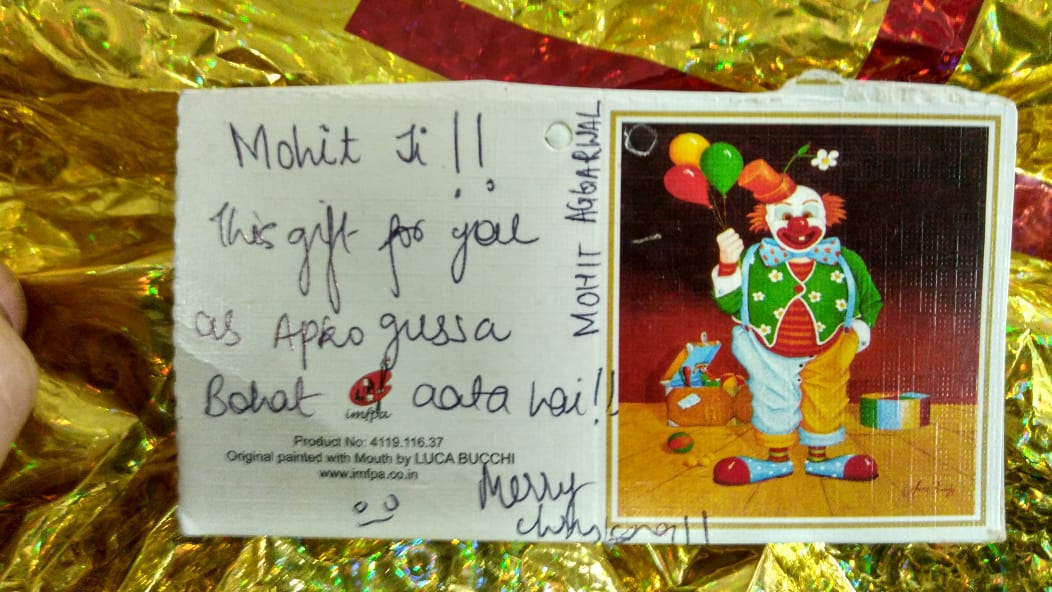 Mohit Ji !!
This gift for you
as Apko gussa
Bohat aata hai!!
imfpa
Product No: 4119.116.37
Original painted with Mouth by LUCA BUCCHI
www.imfpa.co.in
Merry
MOHIT AGGARWAL